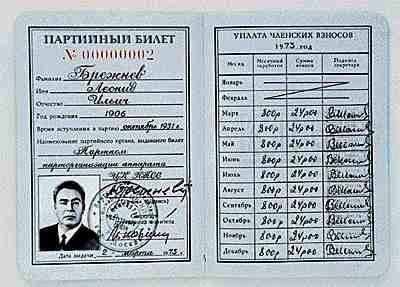 ПАРТИЙНЫЙ БИЛЕТ
№ 00000002
Фамилия Брежнев
Имя Леонид
Отчество Ильич
Год рождения 1906
Время вступления в партию октябрь 1931 г.
Наименование партийного органа, выдавшего билет
Партком
парторганизации аппарата
ЦК КПСС
Дата выдачи 2 марта 1973 г.
УПЛАТА ЧЛЕНСКИХ ВЗНОСОВ
1973 год
Месяц Месячный заработок Сумма взноса Подпись секретаря
Январь
Февраль
Март 800р 24р00
Апрель 800р 24р00
Май 800р 24р00
Июнь 800р 24р00
Июль 800р 24р00
Август 800р 24р00
Сентябрь 800р 24р00
Октябрь 800р 24р00
Ноябрь 800р 24р00
Декабрь 800р 24р00